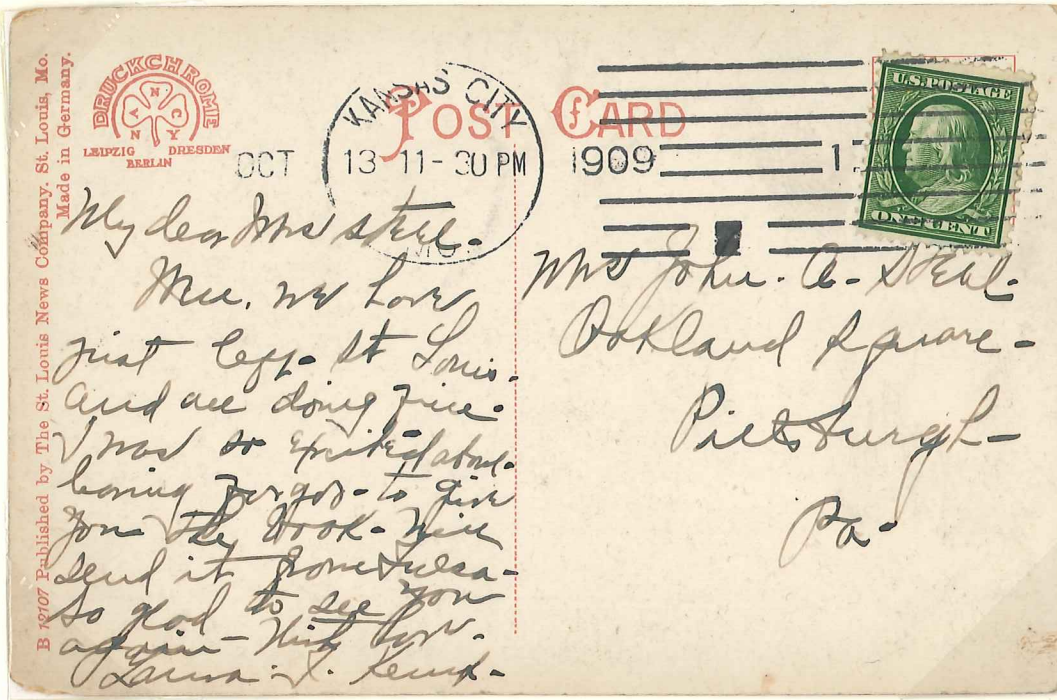 B 12107 Published by The St. Louis News Company. St. Louis, Mo.
Made in Germany.
DRUCKCHROME
N
A C
N Y
LEIPZIG DRESDEN
BERLIN
POST CARD
KANSAS CITY
OCT 13 11-30 PM 1909
MO
1
U.S. POSTAGE
ONE CENT
My dear Mrs Steel-
Well, we have
just left St Louis.
and are doing fine.
I was so excited about
leaving forgot to give
you the book- Will
send it from Tulsa-
So glad to see you
again - With love.
Laura J. Kemp-
Mrs John. A- Steel-
Oakland Square-
Pittsburgh-
Pa-